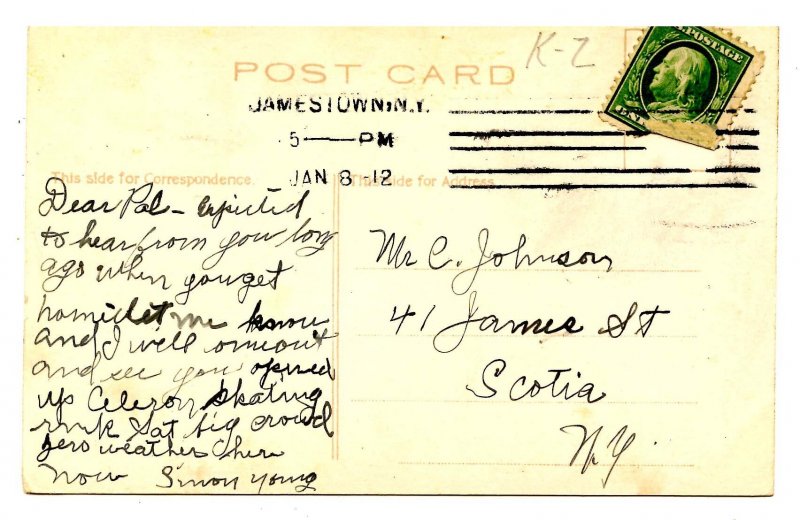 K-Z
POST CARD
POSTAGE
JAMESTOWN, N.Y.
5 — PM
JAN 8 -12
This side for Correspondence.
This side for Address.
Dear Pal - Expected
to hear from you long
ago when you get
home let me know
and I will come out
and see you opened
up Celeron skating
rink Sat big crowd
zero weather here
now Simon Young
Mr C. Johnson
41 James St
Scotia
N Y